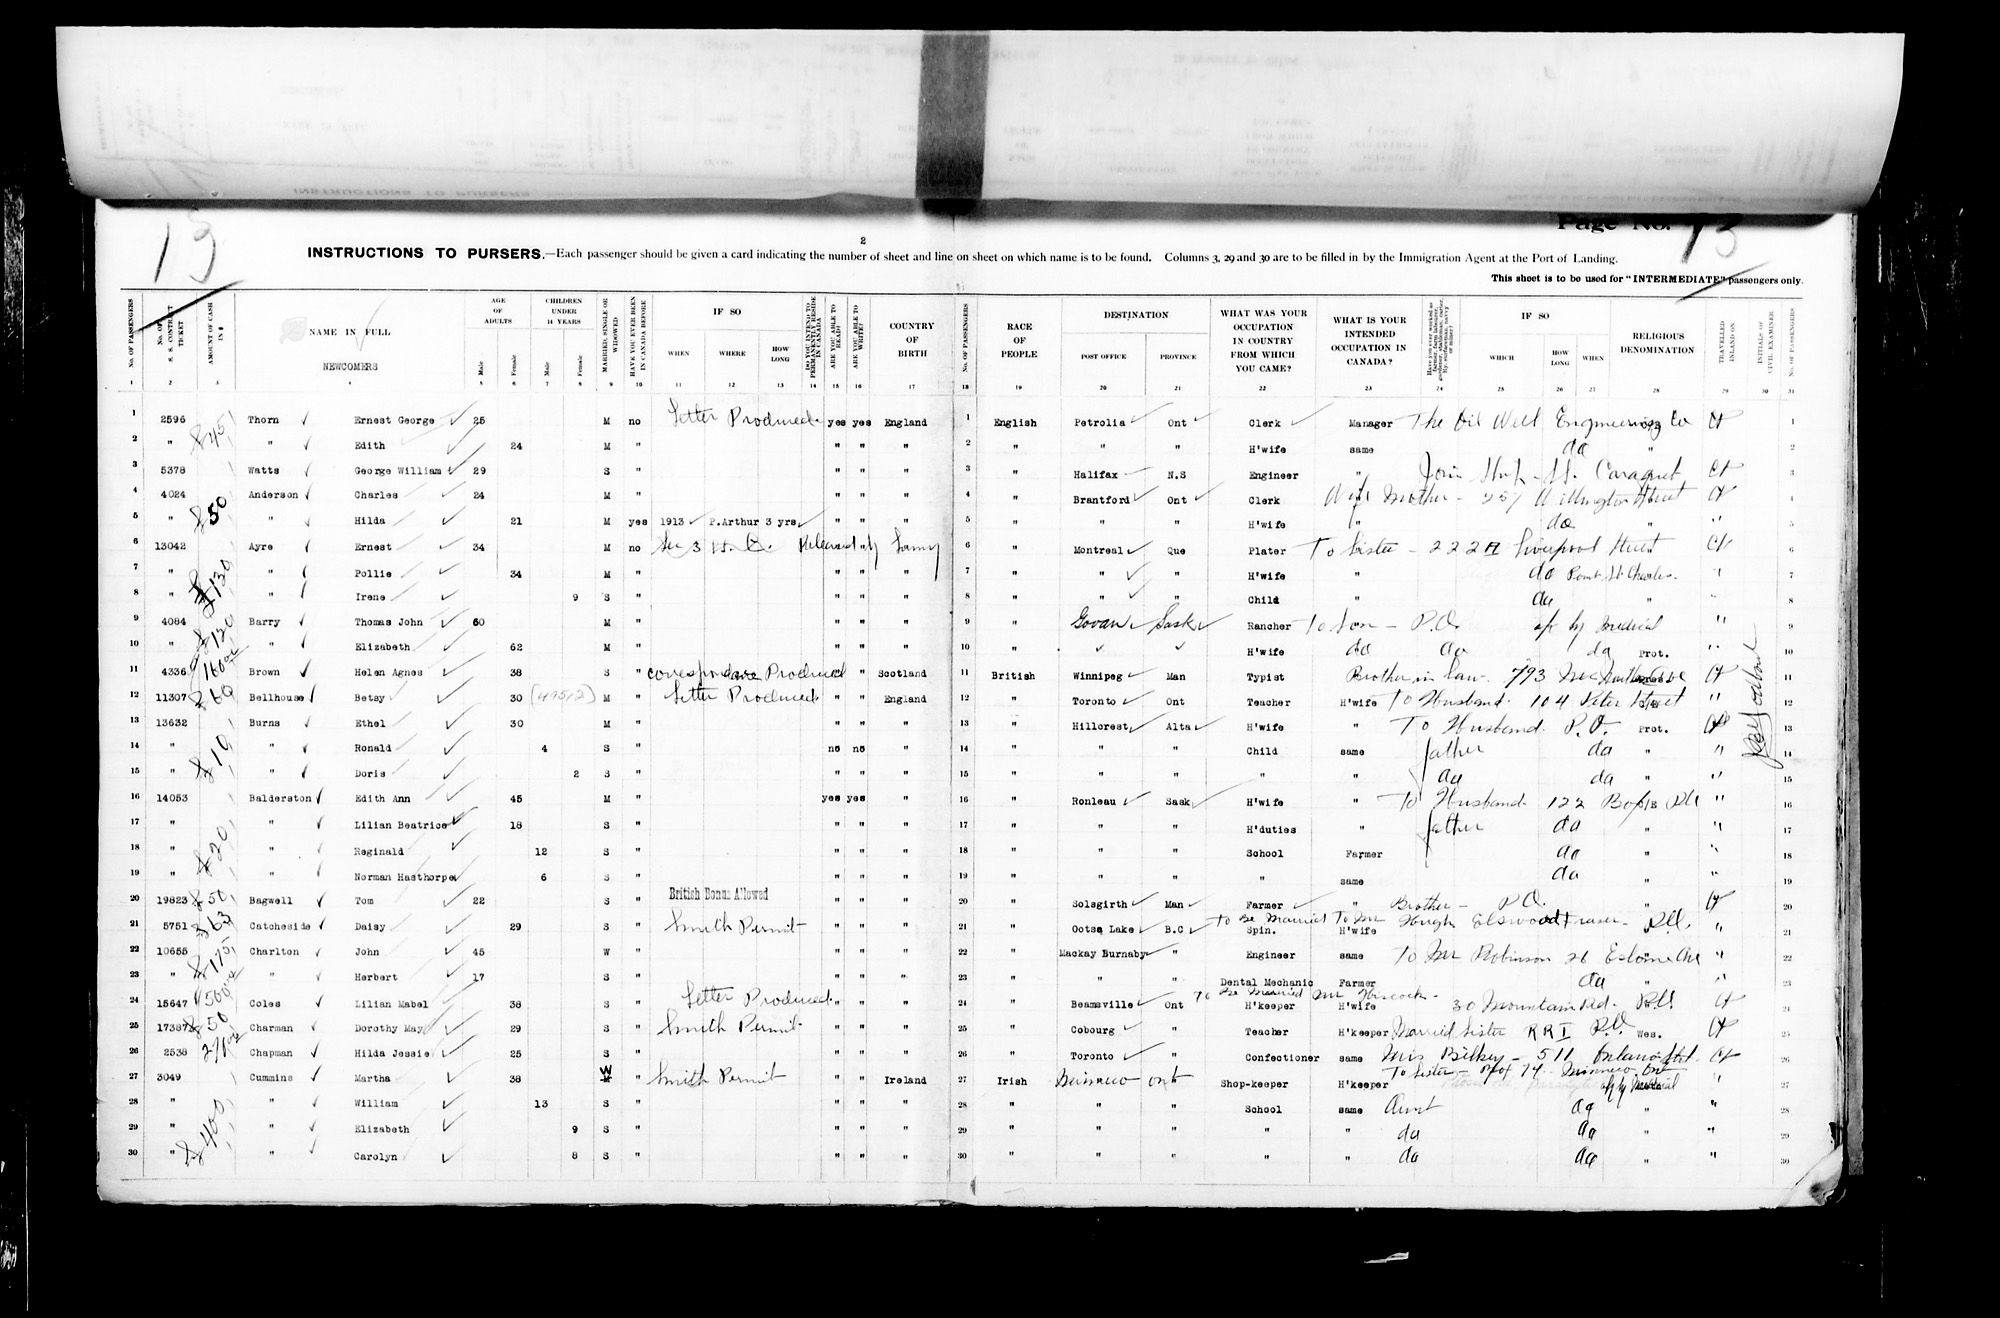 13
Page No. 13
2
INSTRUCTIONS TO PURSERS.—Each passenger should be given a card indicating the number of sheet and line on sheet on which name is to be found. Columns 3, 29 and 30 are to be filled in by the Immigration Agent at the Port of Landing.
This sheet is to be used for "INTERMEDIATE" passengers only.
No. OF PASSENGERS No. OF S. S. CONTRACT TICKET AMOUNT OF CASH IN $ NAME IN FULL NEWCOMERS AGE OF ADULTS Male Female CHILDREN UNDER 14 YEARS Male Female MARRIED, SINGLE OR WIDOWED HAVE YOU EVER BEEN IN CANADA BEFORE IF SO WHEN WHERE HOW LONG DO YOU INTEND TO PERMANENTLY RESIDE IN CANADA? ARE YOU ABLE TO READ? ARE YOU ABLE TO WRITE? COUNTRY OF BIRTH No. OF PASSENGERS RACE OF PEOPLE DESTINATION POST OFFICE PROVINCE WHAT WAS YOUR OCCUPATION IN COUNTRY FROM WHICH YOU CAME? WHAT IS YOUR INTENDED OCCUPATION IN CANADA? IF SO WHICH HOW LONG? WHEN RELIGIOUS DENOMINATION TRAVELLED INLAND ON INITIALS OF CIVIL EXAMINER No. OF PASSENGERS
1 2 3 4 5 6 7 8 9 10 11 12 13 14 15 16 17 18 19 20 21 22 23 24 25 26 27 28 29 30 31
1 2596 $45 Thorn Ernest George 25 M no Letter Produced yes yes England 1 English Petrolia Ont Clerk Manager The Oil Well Engineering Co 1
2 " " Edith 24 M " " " " 2 " " " H'wife same do " 2
3 5378 Watts George William 29 S " " " " 3 " Halifax N.S Engineer " Join Ship - SS. Caraquet 3
4 4024 $50 Anderson Charles 24 M " " " " 4 " Brantford Ont Clerk Wife Mother - 257 Wellington Street 4
5 " " Hilda 21 M yes 1913 P.Arthur 3 yrs " " " 5 " " " H'wife " do " 5
6 13042 Ayre Ernest 34 M no Sec 3 " " 6 " Montreal Que Plater To Sister - 222A Liverpool Street 6
7 " $130 " Pollie 34 M " " " " 7 " " " H'wife " do Point St Charles. 7
8 " " Irene 9 S " " " " 8 " " " Child do " 8
9 4084 $120 Barry Thomas John 60 M " " " " 9 " Govan Sask Rancher To Son - P.O. by Medical 9
10 " " Elizabeth 62 M " " " " 10 " H'wife do do do Prot. 10
11 4336 Brown Helen Agnes 38 S " correspondence Produced " " Scotland 11 British Winnipeg Man Typist Brother in law. 793 11
12 11307 $60 Bellhouse Betsy 30 (49512) M " Letter Produced " " England 12 " Toronto Ont Teacher H'wife To Husband. 104 Peter Street 12
13 13632 Burns Ethel 30 M " " " " 13 " Hillcrest Alta H'wife " To Husband. P.O. Prot. 13
14 " $10 " Ronald 4 S " no no " 14 " " " Child same father do " 14
15 " " Doris 2 S " " " " 15 " " " " " do do " 15
16 14053 Balderston Edith Ann 45 M " yes yes " 16 " Ronleau Sask H'wife " To Husband. 122 Box 16
17 " " Lilian Beatrice 18 S " " " " 17 " " " H'duties " father do " 17
18 " $20 " Reginald 12 S " " " " 18 " " " School Farmer do " 18
19 " " Norman Hasthorpe 6 S " " " " 19 " " " " same do " 19
20 19823 $50 Bagwell Tom 22 S " British Bonus Allowed " " " 20 " Solsgirth Man Farmer " Brother - P.O. 20
21 5751 $63 Catcheside Daisy 29 S " Smith Permit " " " 21 " Ootsa Lake B.C Spin. H'wife To Be Married To Mr Hugh Elswood Fraser - 21
22 10655 $175 Charlton John 45 W " " " " 22 " Mackay Burnaby " Engineer same To Mr Robinson 26 22
23 " " Herbert 17 S " " " " 23 " " " Dental Mechanic Farmer do " 23
24 15647 Coles Lilian Mabel 38 S " Letter Produced " " " 24 " Beamsville Ont H'keeper H'wife To Be Married Mr Hiscock - 30 Mountain Rd. 24
25 17387 $50 Charman Dorothy May 29 S " Smith Permit " " " 25 " Cobourg " Teacher H'keeper Married Sister RR1 P.O. Wes. 25
26 2538 Chapman Hilda Jessie 25 S " " " " 26 " Toronto " Confectioner same 511 26
27 3049 Cummins Martha 38 W " Smith Permit " " Ireland 27 Irish Mimico Ont Shop-keeper H'keeper To Sister - Box 74. Mimico Ont 27
28 " $400 " William 13 S " " " " 28 " " " School same Aunt do " 28
29 " " Elizabeth 9 S " " " " 29 " " " " " do do " 29
30 " " Carolyn 8 S " " " " 30 " " " " " do do " 30